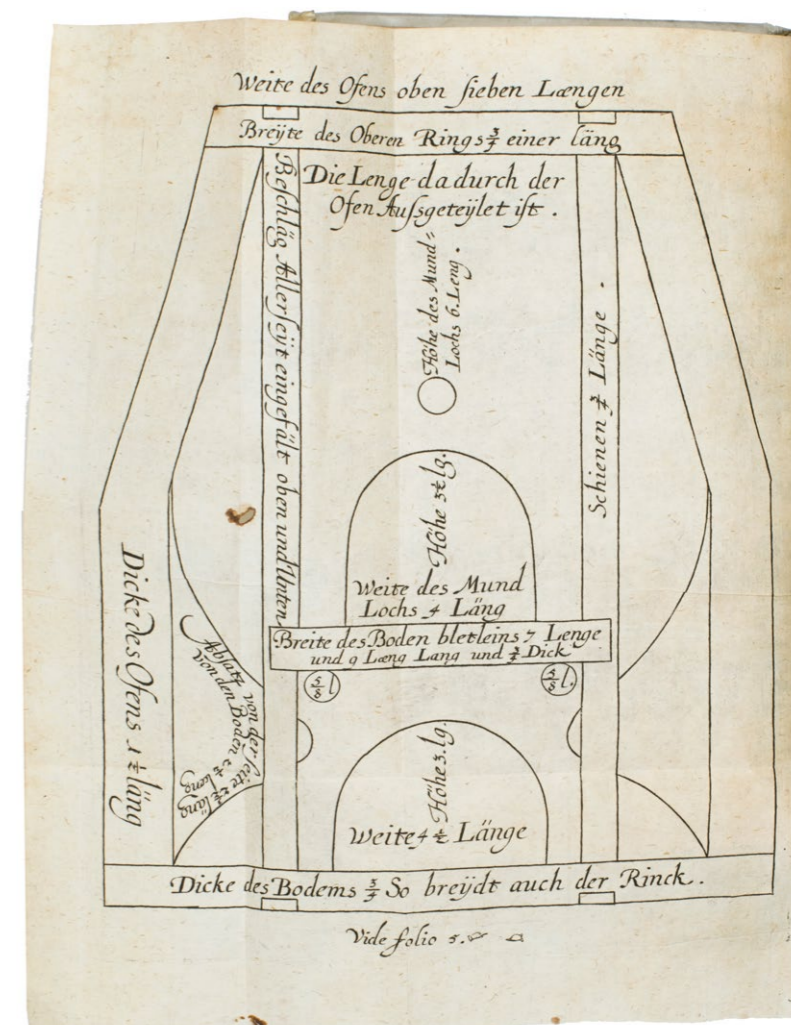 Weite des Ofens oben sieben Længen
Breÿte des Oberen Rings ¾ einer läng
Beschläg Allerseÿt eingefält oben und Unten
Die Lenge da durch der
Ofen Aussgeteÿlet ist .
Höhe des Mund=
Lochs 6. Leng .
Schienen ¾ Länge .
Höhe 3½ lg.
Weite des Mund
Lochs 4 Läng
Breite des Boden bletleins 7 Lenge
und 9 Læng Lang und ¾ Dick
⅝ l
⅝ l.
Dicke des Ofens 1½ läng
Absatz von der seite läng
von den Boden leng
Höhe 3. lg.
Weite 4½ Länge
Dicke des Bodems ¾ So breÿdt auch der Rinck .
Vide folio 5.